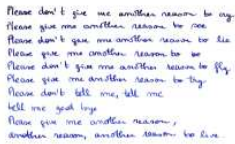 Please don't give me another reason to cry
Please give me another reason to see
Please don't give me another reason to lie
Please give me another reason to be
Please don't give me another reason to fly
Please give me another reason to try
Please don't tell me, tell me
tell me good bye
Please give me another reason,
another reason, another reason to live.